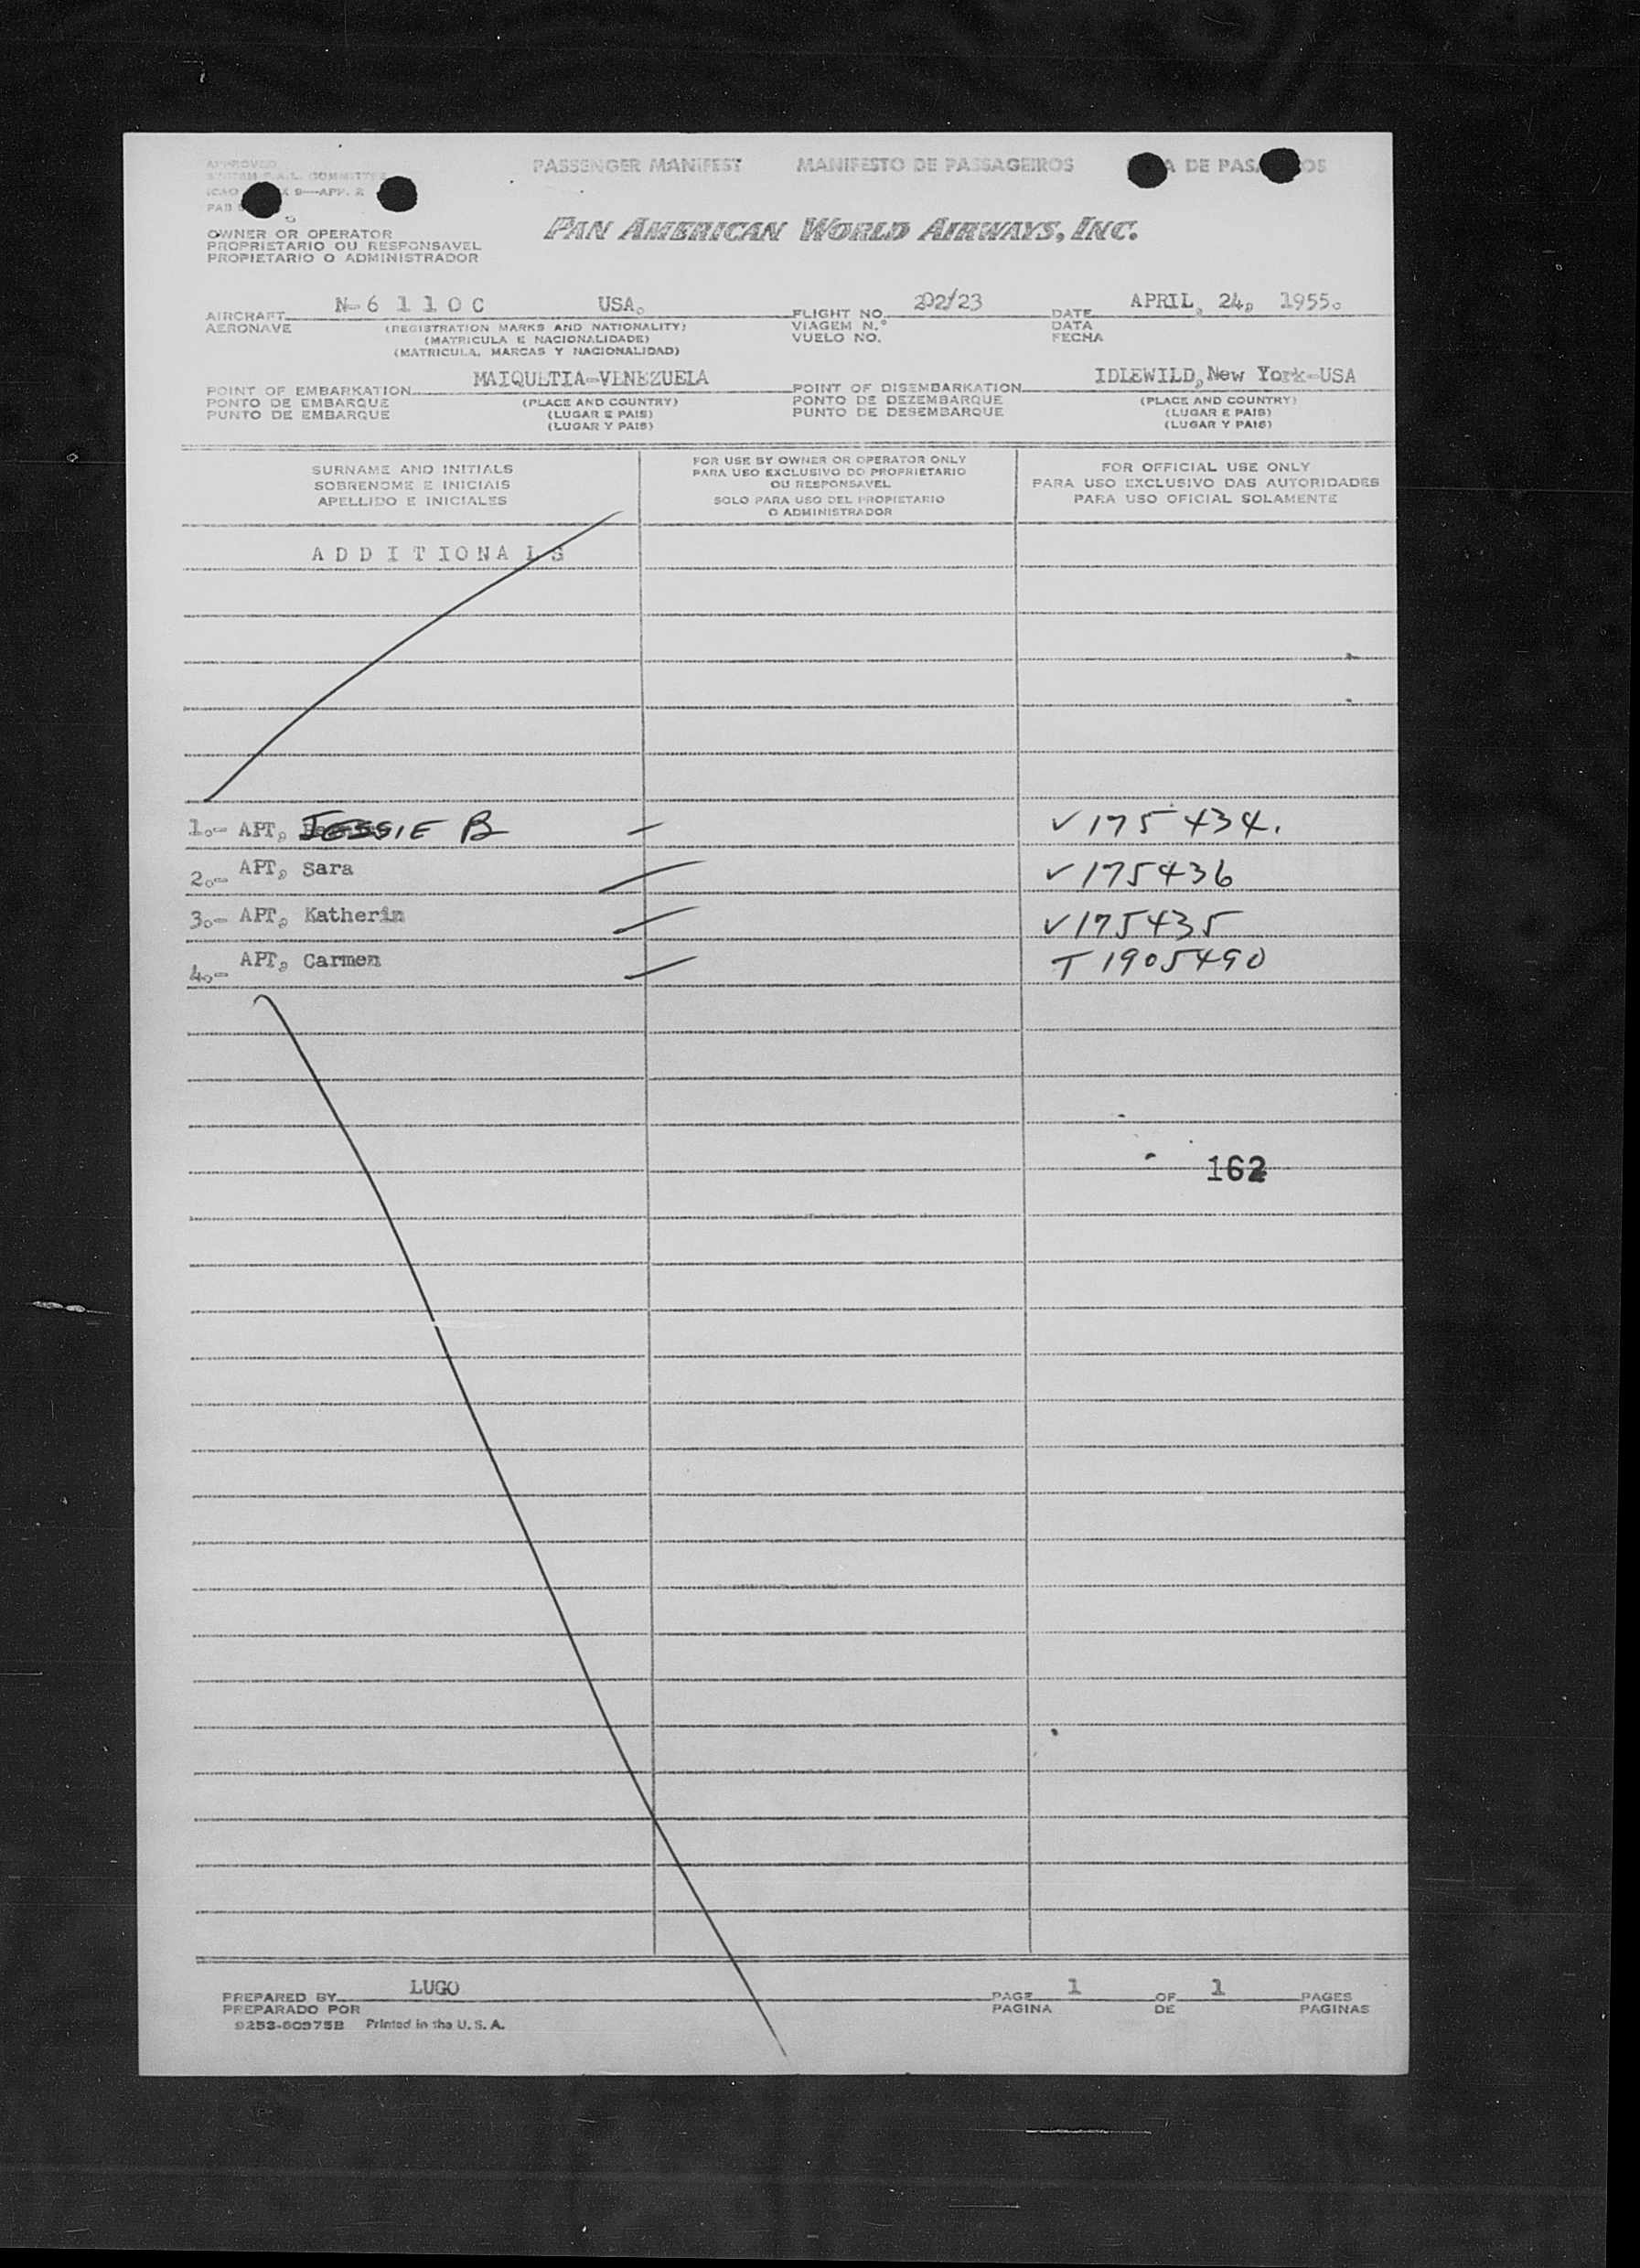 APPROVED
SYSTEM F.A.L. COMMITTEE
ICAO 9—APP. 2
PASSENGER MANIFEST MANIFESTO DE PASSAGEIROS DE
OWNER OR OPERATOR
PROPRIETARIO OU RESPONSAVEL
PROPIETARIO O ADMINISTRADOR
PAN AMERICAN WORLD AIRWAYS, INC.
AIRCRAFT N-6 1 1 0 C USA. FLIGHT NO. 202/23 DATE APRIL, 24, 1955.
AERONAVE (REGISTRATION MARKS AND NATIONALITY) VIAGEM N.º DATA
(MATRICULA E NACIONALIDADE) VUELO NO. FECHA
(MATRICULA, MARCAS Y NACIONALIDAD)
POINT OF EMBARKATION MAIQUETIA-VENEZUELA POINT OF DISEMBARKATION IDLEWILD, New York-USA
PONTO DE EMBARQUE (PLACE AND COUNTRY) PONTO DE DEZEMBARQUE (PLACE AND COUNTRY)
PUNTO DE EMBARQUE (LUGAR E PAIS) PUNTO DE DESEMBARQUE (LUGAR E PAIS)
(LUGAR Y PAIS) (LUGAR Y PAIS)
SURNAME AND INITIALS
SOBRENOME E INICIAIS
APELLIDO E INICIALES
FOR USE BY OWNER OR OPERATOR ONLY
PARA USO EXCLUSIVO DO PROPRIETARIO
OU RESPONSAVEL
SOLO PARA USO DEL PROPIETARIO
O ADMINISTRADOR
FOR OFFICIAL USE ONLY
PARA USO EXCLUSIVO DAS AUTORIDADES
PARA USO OFICIAL SOLAMENTE
A D D I T I O N A L S
1.- APT, JESSIE B — ✓ 175434.
2.- APT, Sara — ✓ 175436
3.- APT, Katherin — ✓ 175435
4.- APT, Carmen — T 1905490
162
PREPARED BY LUGO PAGE 1 OF 1 PAGES
PREPARADO POR PAGINA DE PAGINAS
9253-60375B Printed in the U. S. A.